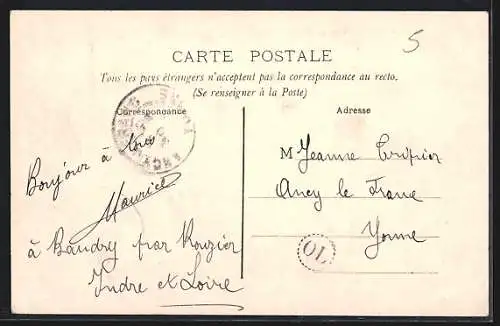 5
CARTE POSTALE
Tous les pays étrangers n'acceptent pas la correspondance au recto.
(Se renseigner à la Poste)
Correspondance
Adresse
Bonjour à tous
Maurice
à Baudry par Rouzier
Indre et Loire
M Jeanne
Ancy le Franc
Yonne
OL